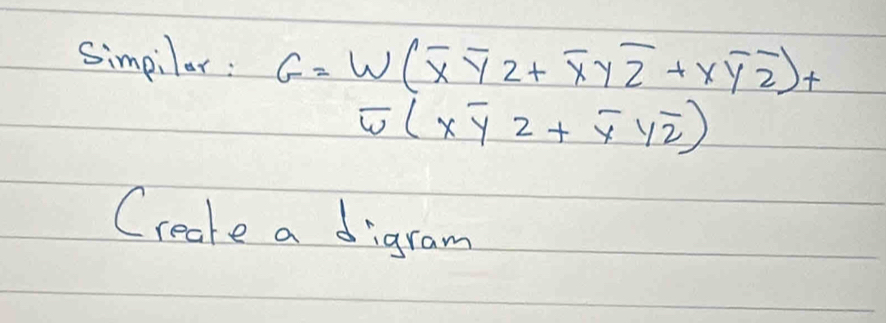 Simpilar: G = W(X̅ Y̅ Z + X̅ Y Z̅ + X Y̅ Z̅) +
W̅ (X Y̅ Z + X̅ Y Z̅)
Create a digram